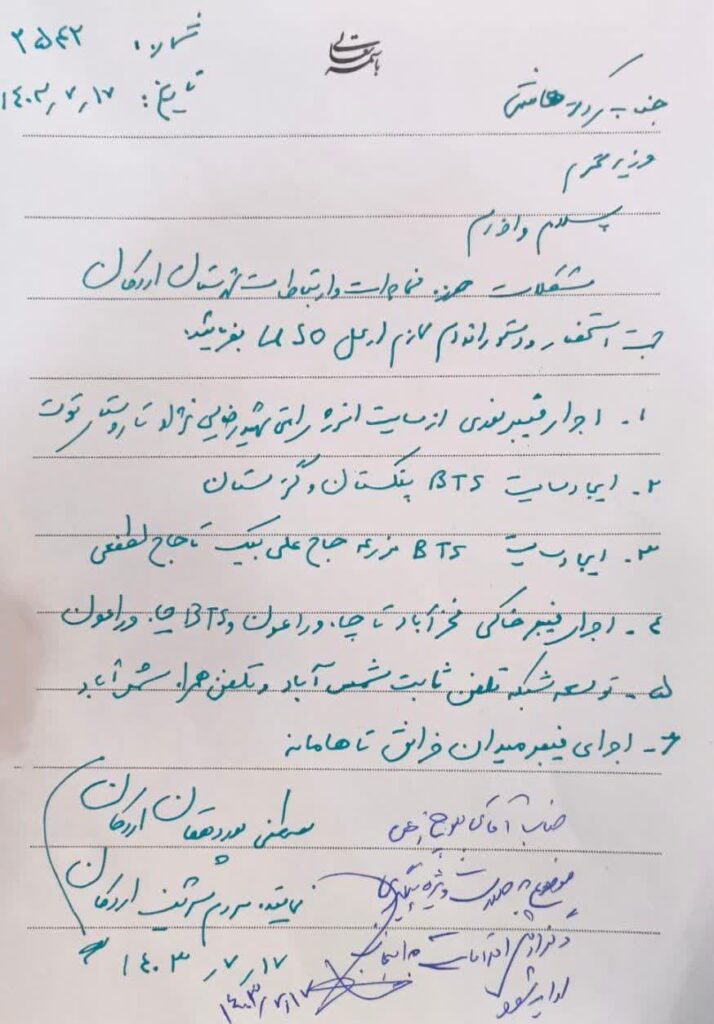 باسمه تعالی
شماره: ۳۵۴۲
تاریخ: ۱۴۰۳/۷/۱۷
جناب دکتر هاشمی
وزیر محترم
سلام و احترام
مشکلات حوزه مخابرات و ارتباطات شهرستان اردکان
جهت استحضار و دستور اقدام لازم از محل USO بفرمائید.
۱- اجرای فیبر نوری از سایت انرژی اتمی شهید رضایی نژاد تا روستای توت
۲- ایجاد سایت BTS پتکستان و گزستان
۳- ایجاد سایت BTS مزرعه حاج علی بیک تا حاج لطفعلی
۴- اجرای فیبر خاکی فخرآباد تا چاه وراعون و BTS چاه وراعون
۵- توسعه شبکه تلفن ثابت شمس آباد و تلفن همراه شمس آباد
۶- اجرای فیبر میدان خرانق تا هامانه
مصطفی پوردهقان اردکان
نماینده مردم شریف اردکان
۱۴۰۳/۷/۱۷
جناب آقای
موضوع به صورت ویژه پیگیری
و گزارش اقدامات به اینجانب
ارایه شود
۱۴۰۳/۷/۱۷